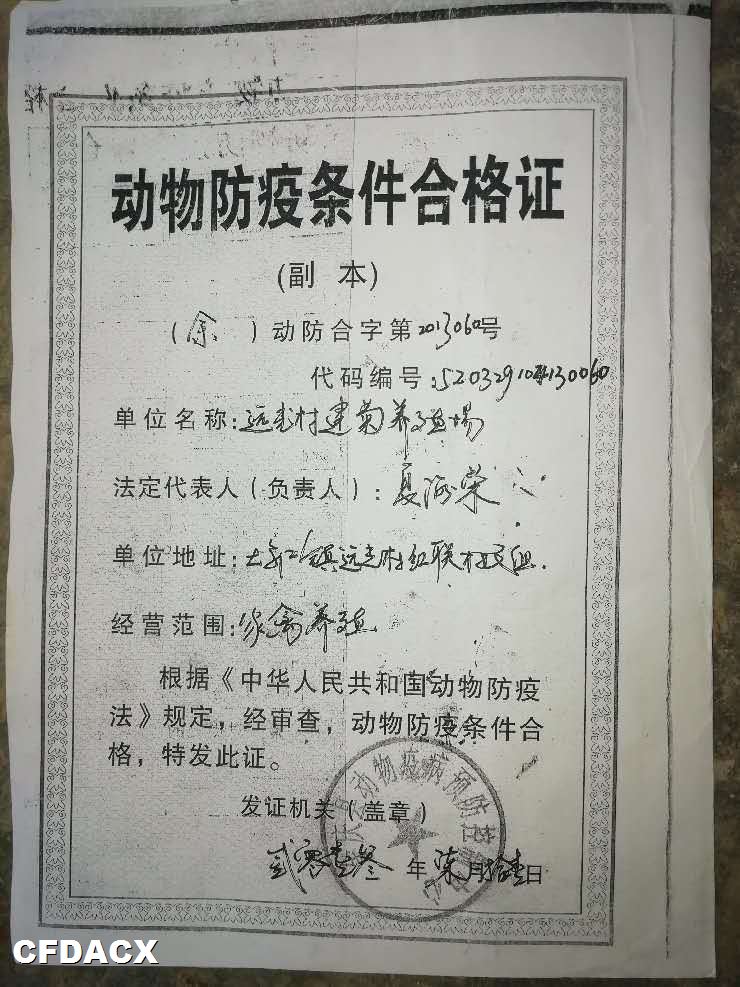 动物防疫条件合格证
(副 本)
(余 )动防合字第2013060号
代码编号:520329104130060
单位名称:远光村建菊养殖场
法定代表人(负责人):夏海荣
单位地址:大乌江镇远光村红联村民组.
经营范围:家禽养殖
根据《中华人民共和国动物防疫
法》规定,经审查,动物防疫条件合
格,特发此证。
动物疫病预防控制中心
发证机关(盖章)
贰零壹叁 年 柒 月 拾壹 日
CFDACX